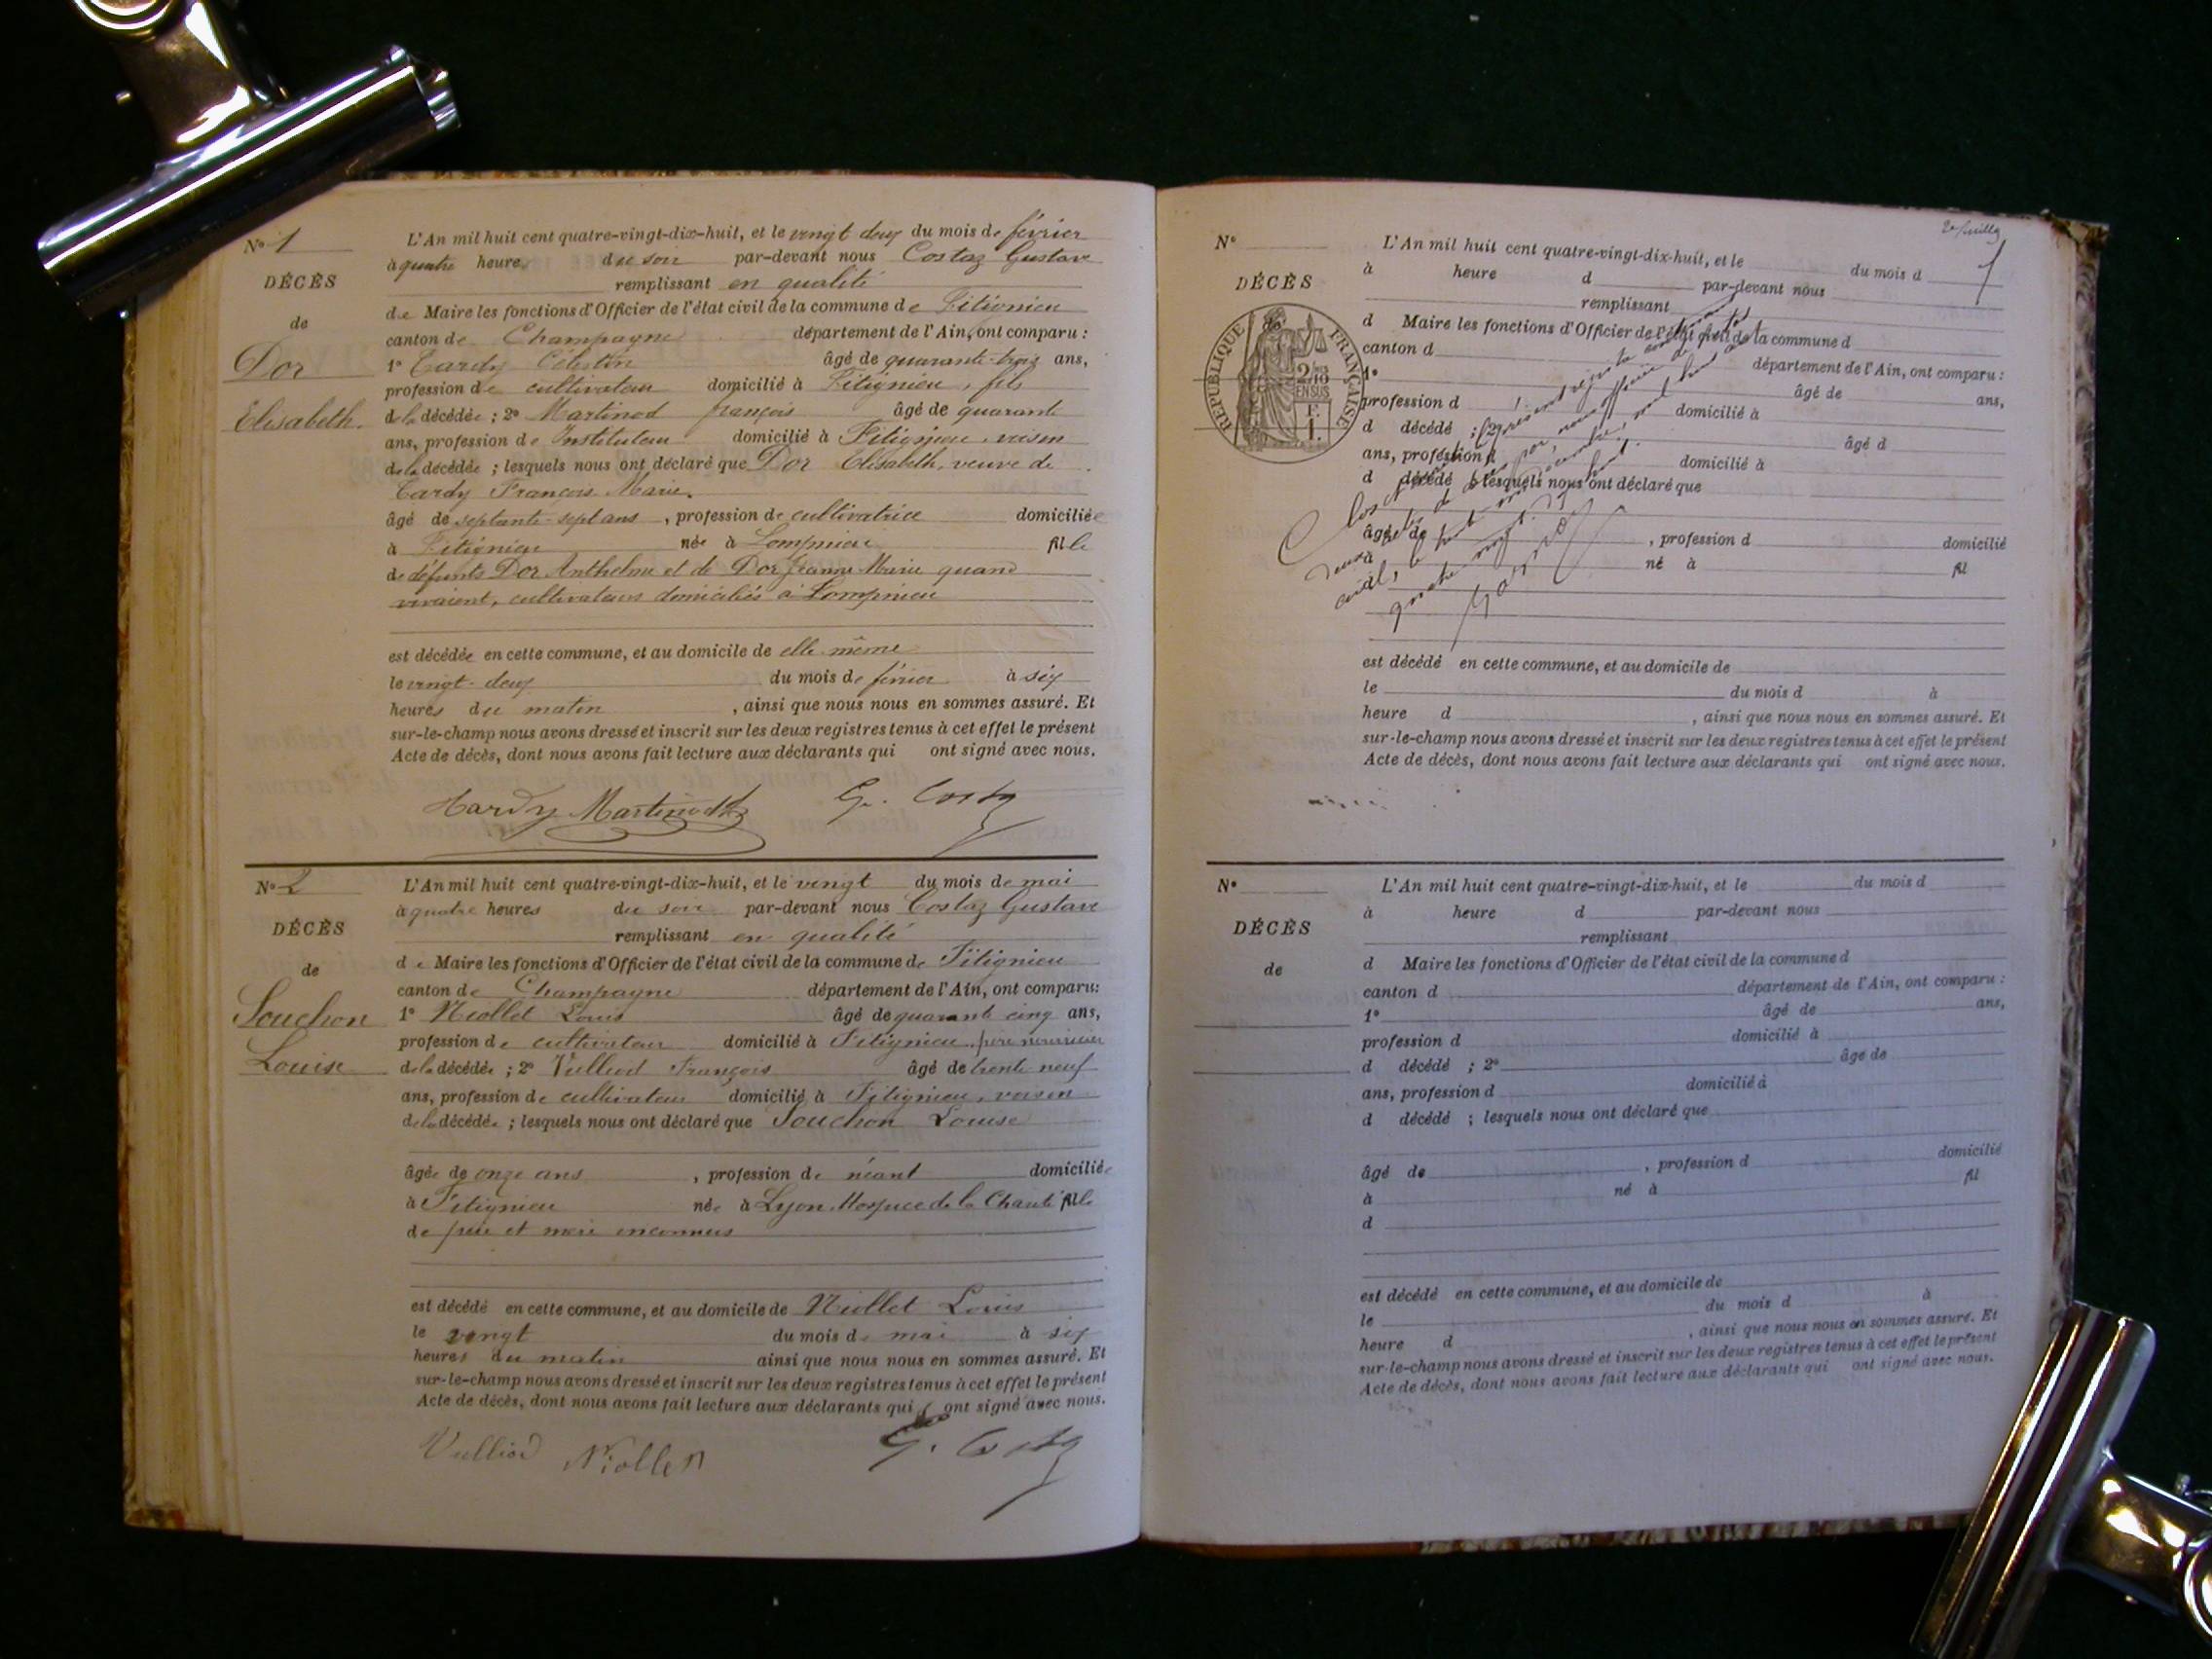 N° 1
DÉCÈS
de
Dor
Elisabeth.
L'An mil huit cent quatre-vingt-dix-huit, et le vingt deux du mois de février
à quatre heures du soir par-devant nous Costaz Gustave
remplissant en qualité
de Maire les fonctions d'Officier de l'état civil de la commune de Fitignieu
canton de Champagne département de l'Ain, ont comparu :
1° Tardy Célestin âgé de quarante-trois ans,
profession de cultivateur domicilié à Fitignieu, fils
de la décédée ; 2° Martinod françois âgé de quarante
ans, profession de Instituteur domicilié à Fitignieu, voisin
de la décédée ; lesquels nous ont déclaré que Dor Elisabeth, veuve de
Tardy François Marie,
âgé de septante-sept ans , profession de cultivatrice domiciliée
à Fitignieu née à Lompnieu fille
de défunts Dor Anthelme et de Dor Jeanne Marie quand
vivaient, cultivateurs domiciliés à Lompnieu
est décédée en cette commune, et au domicile de elle même
le vingt-deux du mois de février à six
heures du matin , ainsi que nous nous en sommes assuré. Et
sur-le-champ nous avons dressé et inscrit sur les deux registres tenus à cet effet le présent
Acte de décès, dont nous avons fait lecture aux déclarants qui ont signé avec nous.
Tardy Martinod G. Costaz
N° 2
DÉCÈS
de
Souchon
Louise
L'An mil huit cent quatre-vingt-dix-huit, et le vingt du mois de mai
à quatre heures du soir par-devant nous Costaz Gustave
remplissant en qualité
de Maire les fonctions d'Officier de l'état civil de la commune de Fitignieu
canton de Champagne département de l'Ain, ont comparu:
1° Niollet Louis âgé de quarante cinq ans,
profession de cultivateur domicilié à Fitignieu, père nourricier
de la décédée ; 2° Vulliod François âgé de trente neuf
ans, profession de cultivateur domicilié à Fitignieu, voisin
de la décédée ; lesquels nous ont déclaré que Souchon Louise
âgée de onze ans , profession de néant domiciliée
à Fitignieu née à Lyon, Hospice de la Charité fille
de père et mère inconnus
est décédé en cette commune, et au domicile de Niollet Louis
le vingt du mois de mai à six
heures du matin ainsi que nous nous en sommes assuré. Et
sur-le-champ nous avons dressé et inscrit sur les deux registres tenus à cet effet le présent
Acte de décès, dont nous avons fait lecture aux déclarants qui ont signé avec nous.
Vulliod Niollet G. Costaz
N°
DÉCÈS
RÉPUBLIQUE FRANÇAISE
2/10
EN SUS
L'An mil huit cent quatre-vingt-dix-huit, et le du mois d
à heure d par-devant nous
remplissant
d Maire les fonctions d'Officier de l'état civil de la commune d
canton d département de l'Ain, ont comparu :
1° âgé de ans,
profession d domicilié à
d décédé ; 2° âgé d
ans, profession d domicilié à
d décédé ; lesquels nous ont déclaré que
âgé de , profession d domicilié
à né à fil
Clos le présent registre
deux actes de décès par nous officier de l'état
civil, le trente un décembre, mil huit cent
quatre vingt dix huit.
est décédé en cette commune, et au domicile de
le du mois d à
heure d , ainsi que nous nous en sommes assuré. Et
sur-le-champ nous avons dressé et inscrit sur les deux registres tenus à cet effet le présent
Acte de décès, dont nous avons fait lecture aux déclarants qui ont signé avec nous.
N°
DÉCÈS
de
L'An mil huit cent quatre-vingt-dix-huit, et le du mois d
à heure d par-devant nous
remplissant
d Maire les fonctions d'Officier de l'état civil de la commune d
canton d département de l'Ain, ont comparu :
1° âgé de ans,
profession d domicilié à
d décédé ; 2° âgé de
ans, profession d domicilié à
d décédé ; lesquels nous ont déclaré que
âgé de , profession d domicilié
à né à fil
d
est décédé en cette commune, et au domicile de
le du mois d à
heure d , ainsi que nous nous en sommes assuré. Et
sur-le-champ nous avons dressé et inscrit sur les deux registres tenus à cet effet le présent
Acte de décès, dont nous avons fait lecture aux déclarants qui ont signé avec nous.